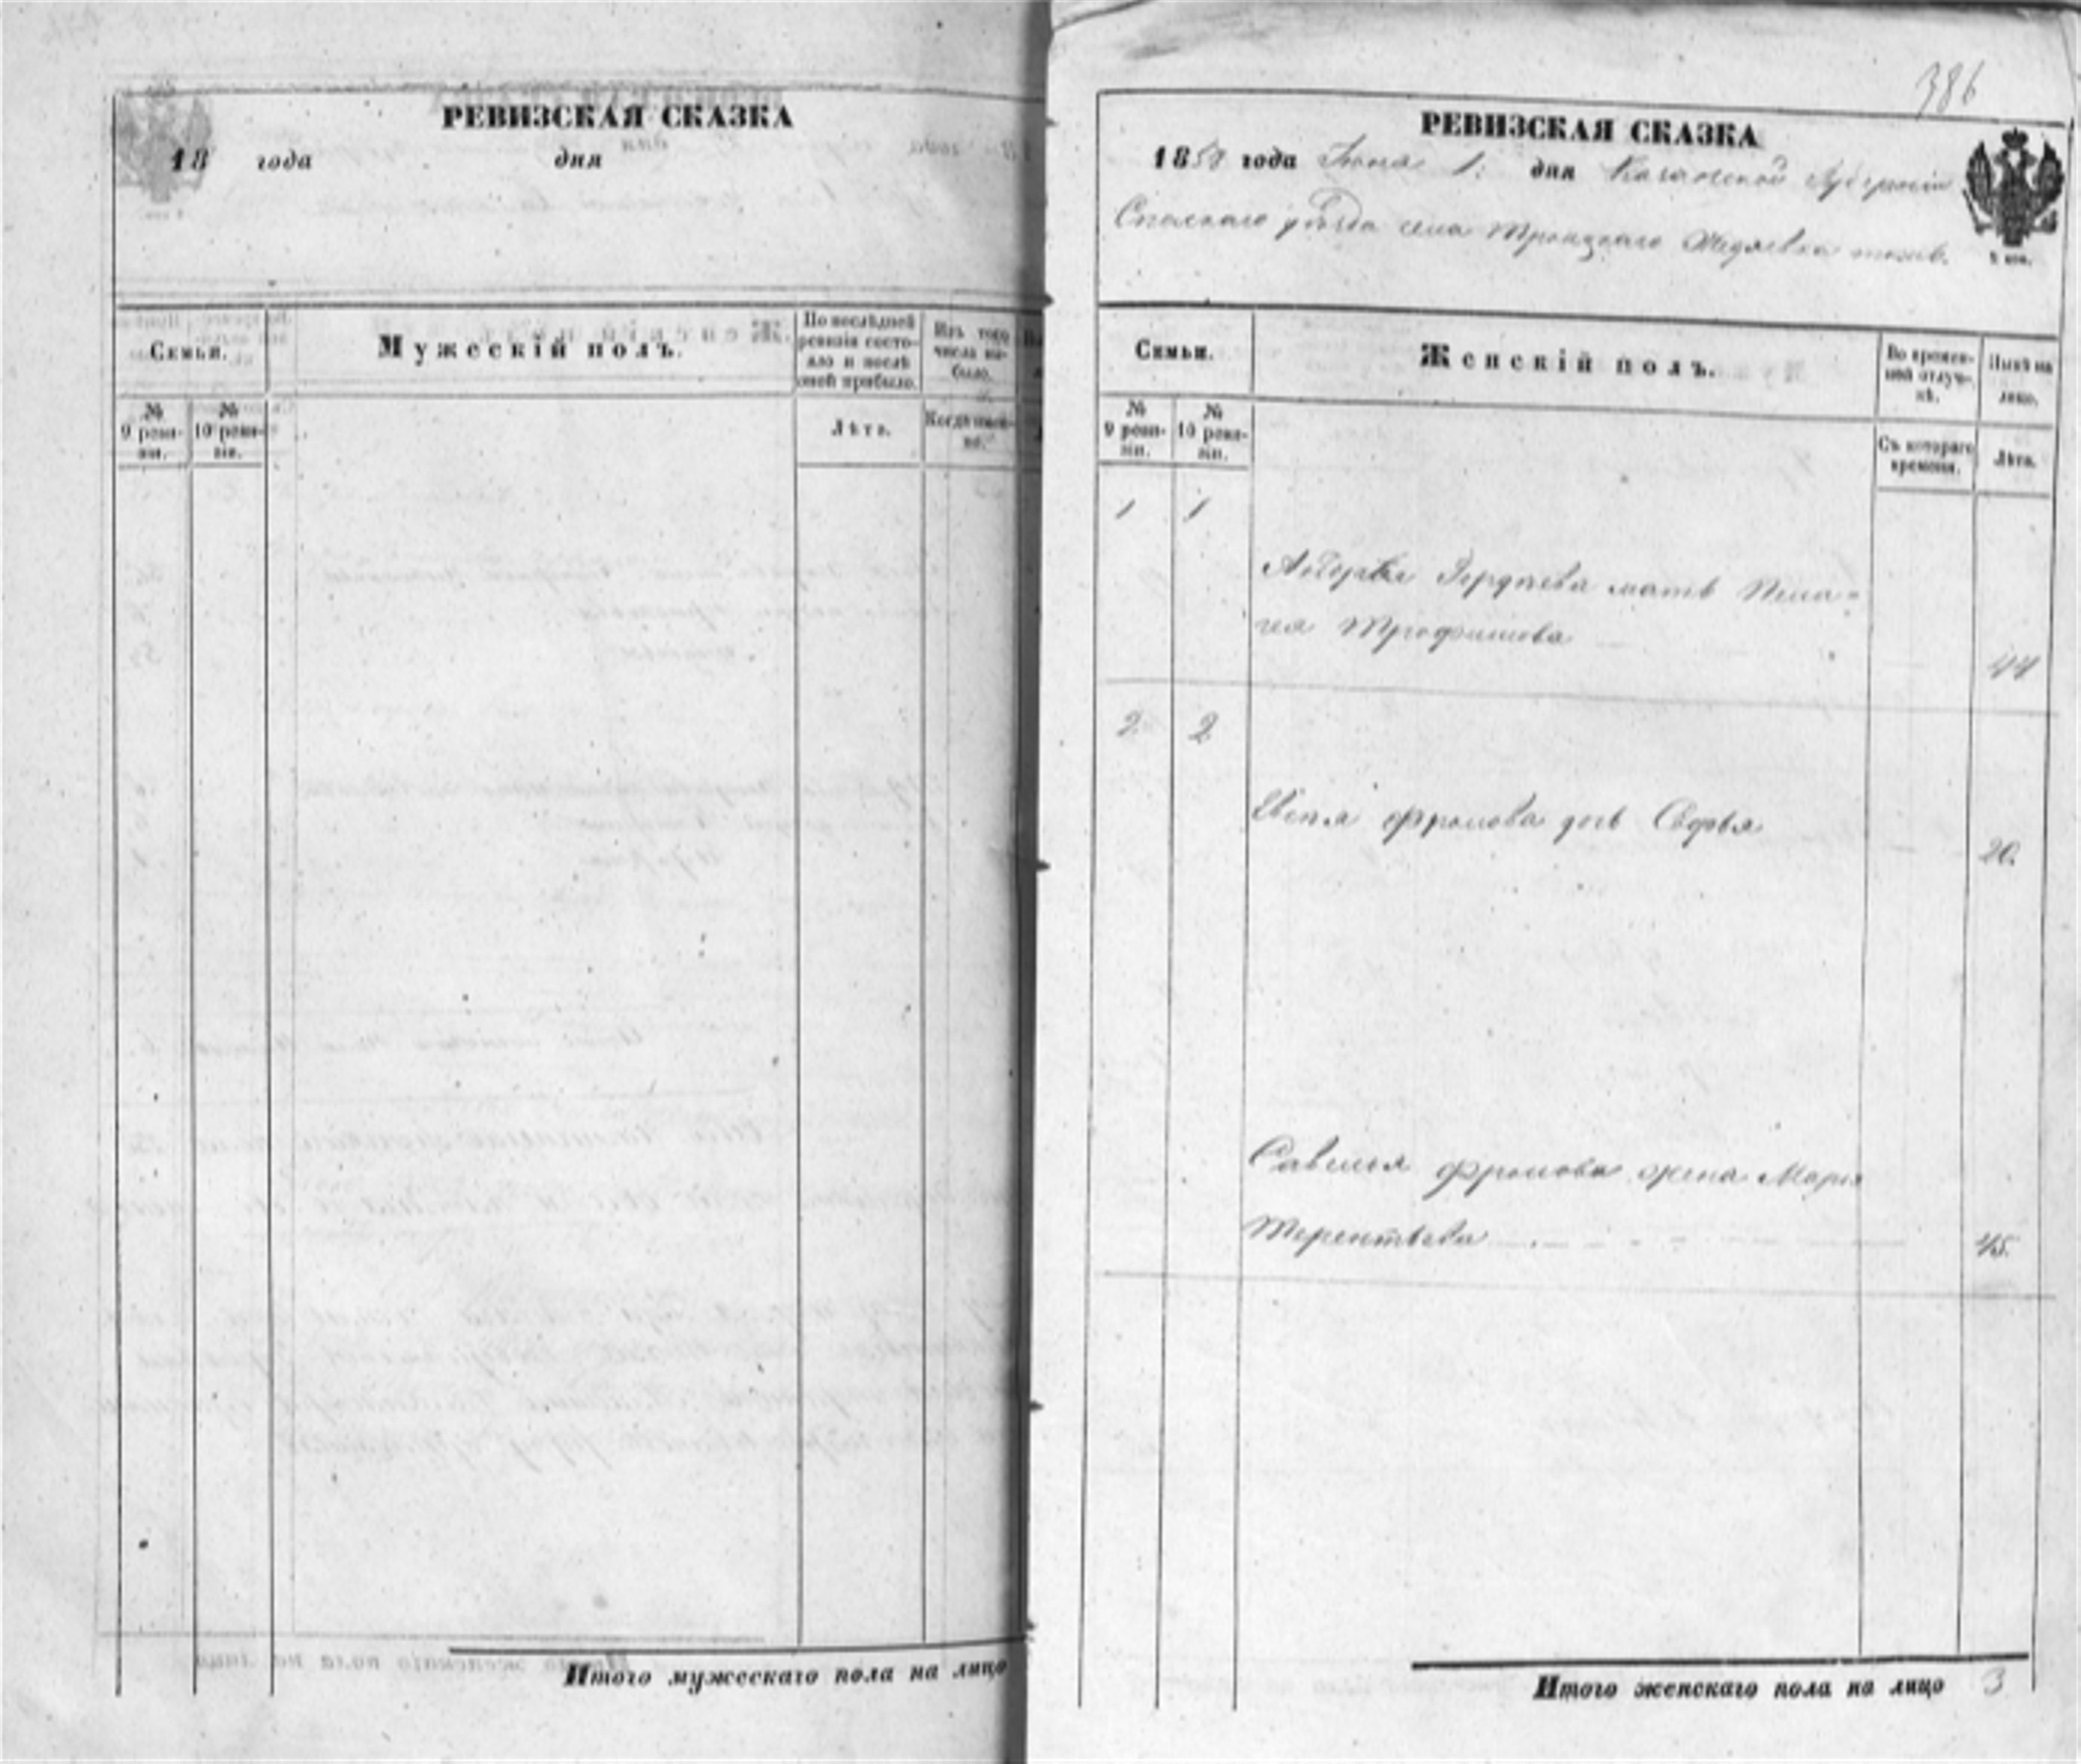 РЕВИЗСКАЯ СКАЗКА
18 года дня
Семьи.
Мужескій полъ.
По послѣдней
ревизіи состо-
яло и послѣ
оной прибыло.
Изъ того
числа вы-
было.
№
9 реви-
зіи.
№
10 реви-
зіи.
Лѣта.
Когда имен-
но.
Итого мужескаго пола на лицо
386
РЕВИЗСКАЯ СКАЗКА
1858 года Іюня 1: дня Казанской Губерніи
Спаскаго уѣзда села Троицкаго тожъ.
Семьи.
Женскій полъ.
Во времен-
ной отлуч-
кѣ.
Нынѣ на
лицо.
№
9 реви-
зіи.
№
10 реви-
зіи.
Съ котораго
времени.
Лѣта.
1 1
мать Пела-
гея Трофимова 44
2 2
Фролова дочь Софья 20.
Савелья Фролова жена Марья
Терентьева 45.
Итого женскаго пола на лицо 3